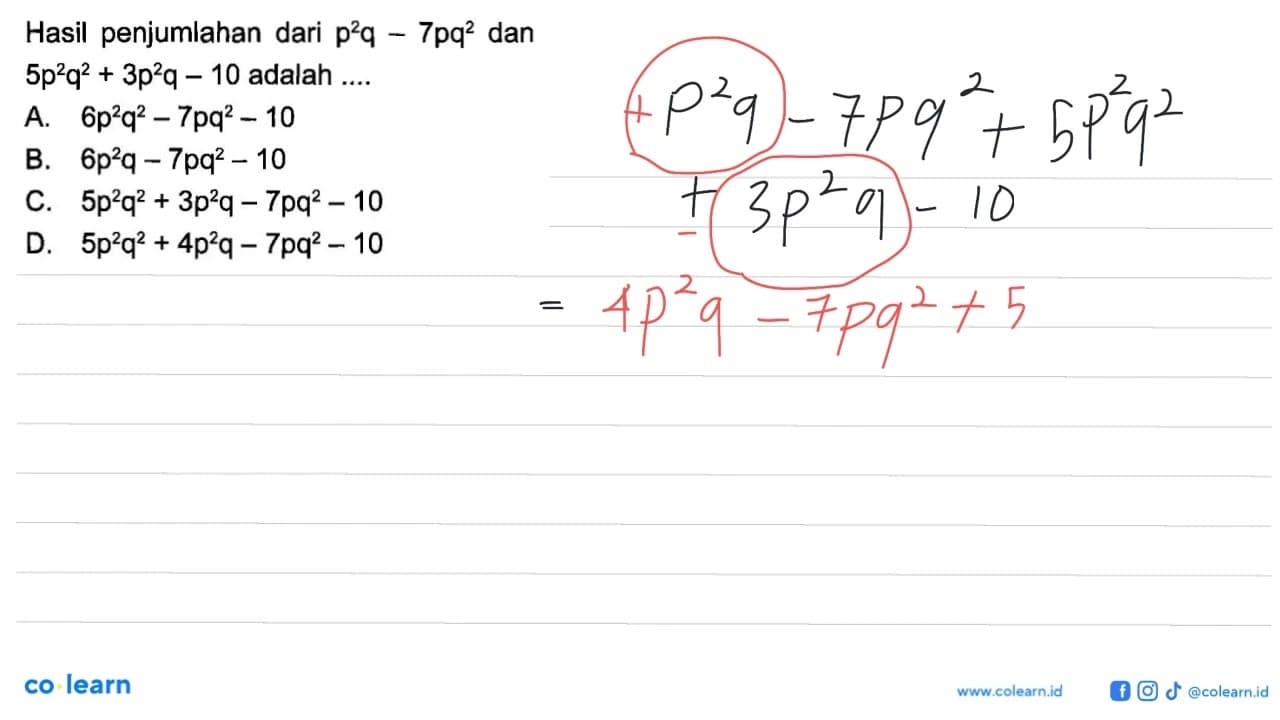 Hasil penjumlahan dari p²q – 7pq² dan
5p²q² + 3p²q – 10 adalah ....
A. 6p²q² – 7pq² – 10
B. 6p²q – 7pq² – 10
C. 5p²q² + 3p²q – 7pq² – 10
D. 5p²q² + 4p²q – 7pq² – 10
+p²q - 7pq² + 5p²q²
+ 3p²q - 10
= 4p²q - 7pq² + 5
co learn
www.colearn.id @colearn.id